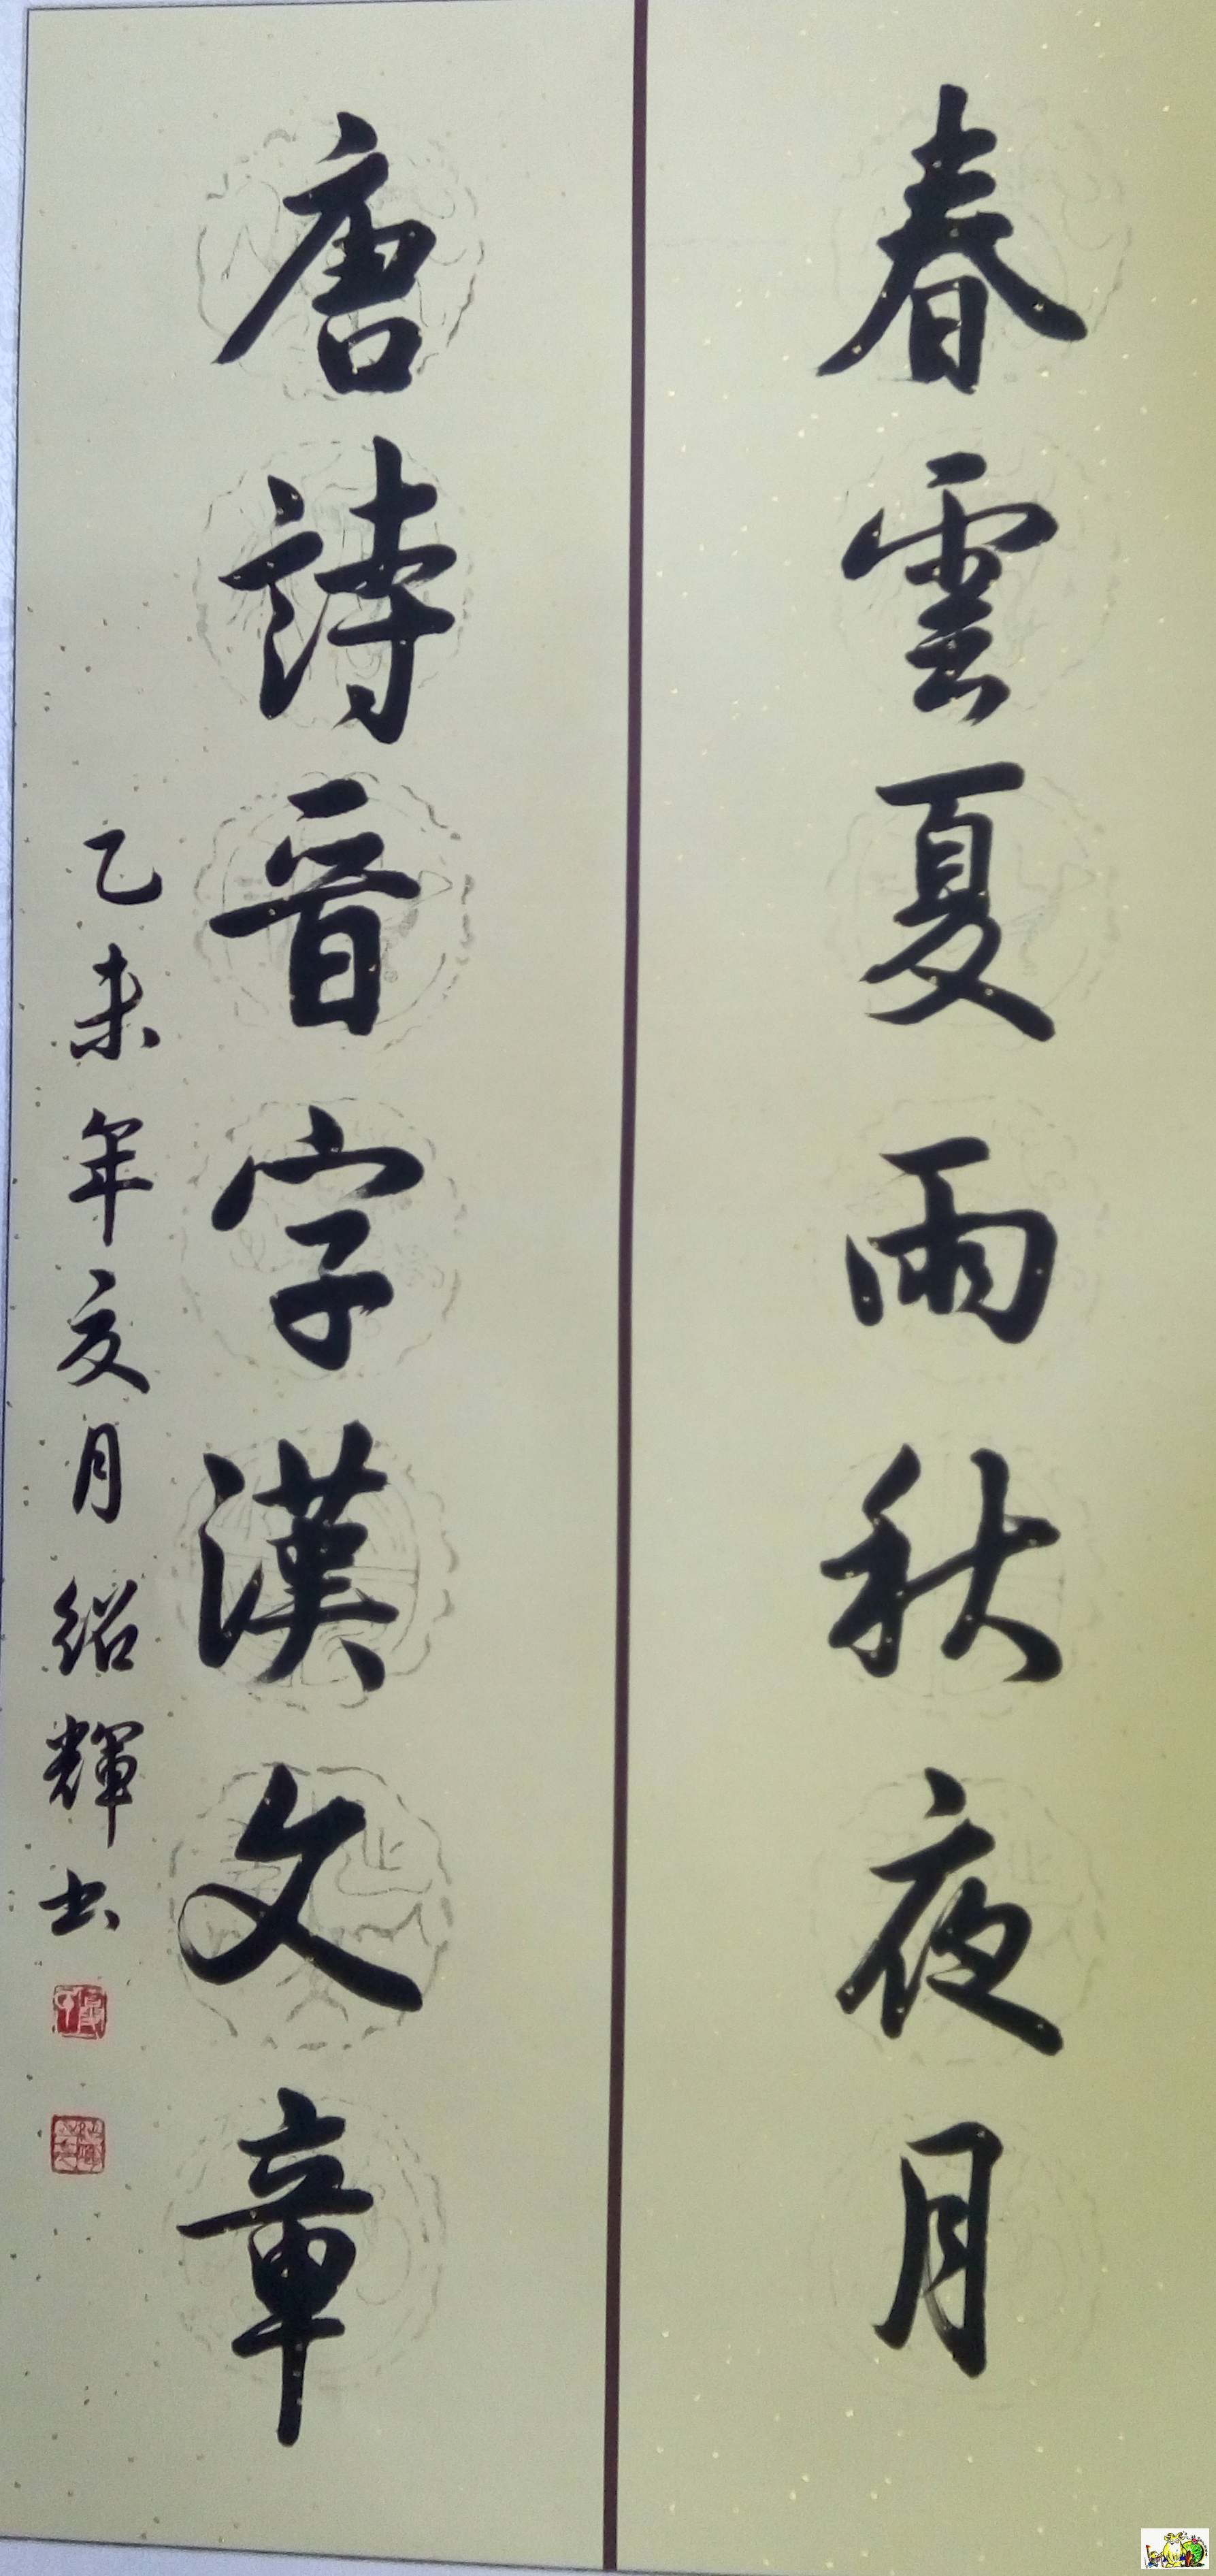 春雲夏雨秋夜月
唐詩晉字漢文章
乙未年亥月绍輝书